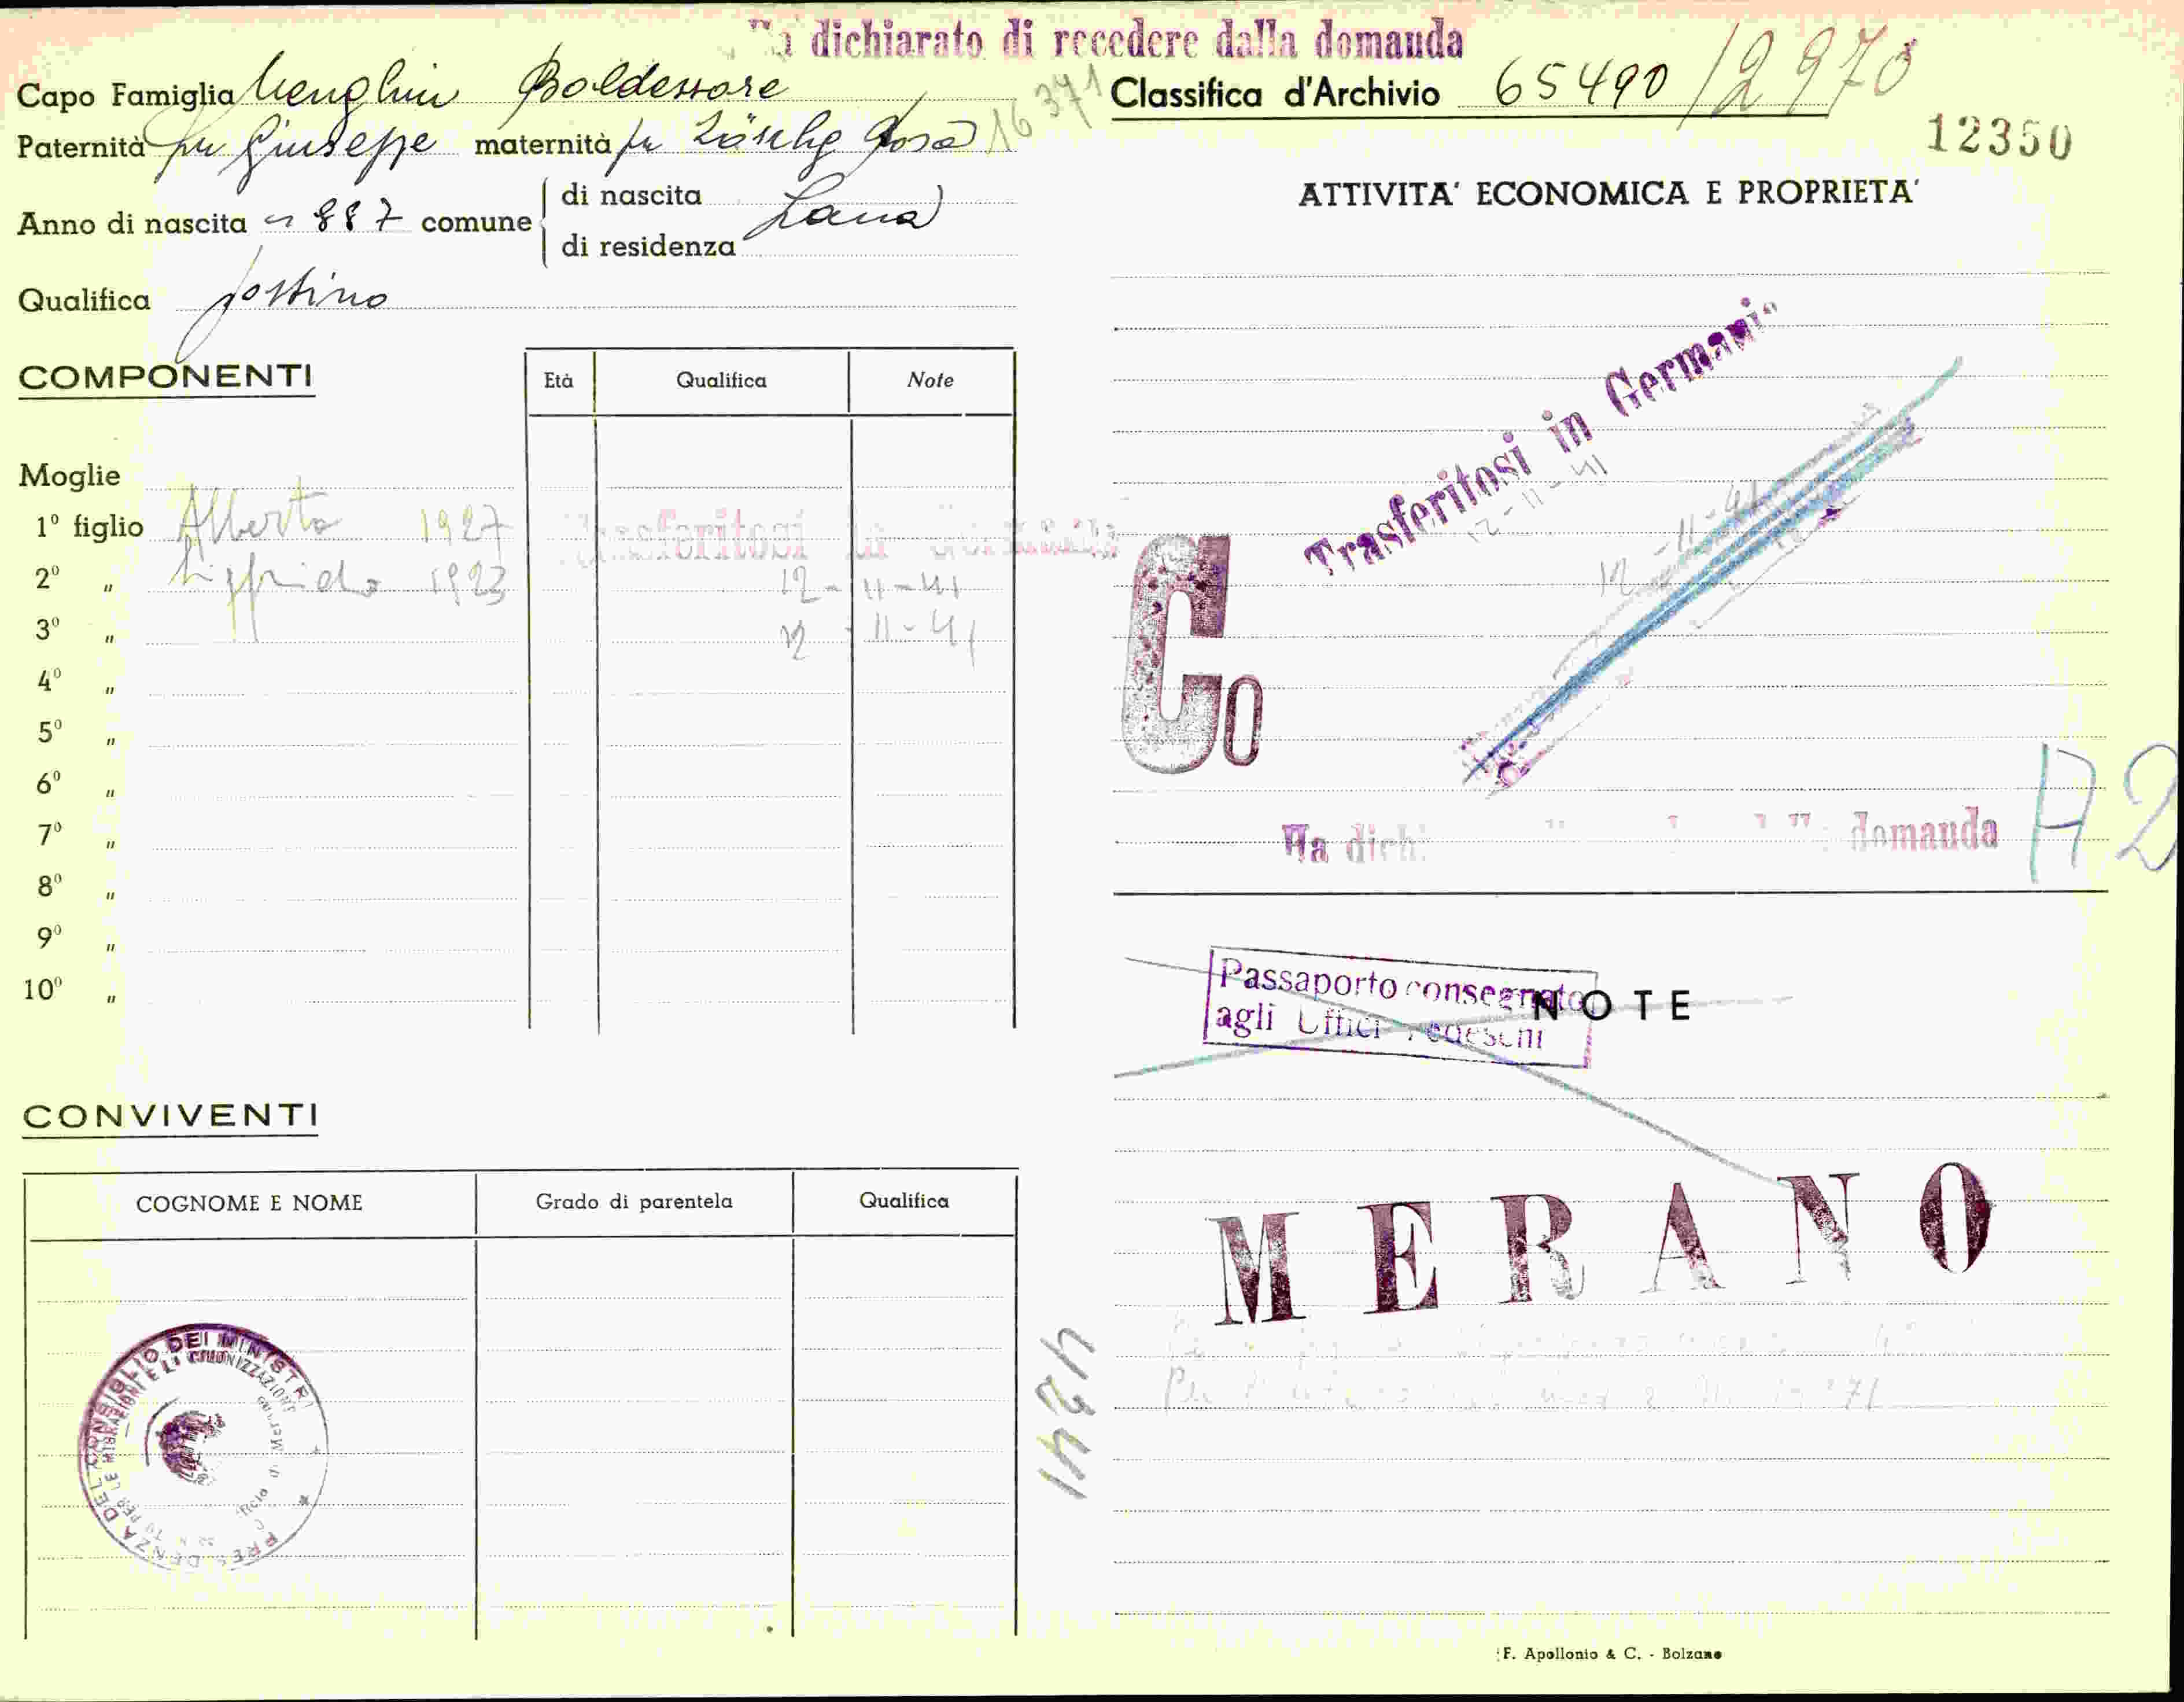 Ha dichiarato di recedere dalla domanda
Capo Famiglia Menghin Baldessare
Paternità fu Giuseppe maternità fu Zöschg Rosa
16371
Anno di nascita 1887 comune
di nascita Lana
di residenza
Qualifica postino
COMPONENTI
Età Qualifica Note
Moglie
1° figlio Alberto 1927 Trasferitosi in Germania
2° " Siffrido 1923 12-11-41
3° " 12-11-41
4° "
5° "
6° "
7° "
8° "
9° "
10° "
CONVIVENTI
COGNOME E NOME Grado di parentela Qualifica
PRESIDENZA DEL CONSIGLIO DEI MINISTRI
PER LE MIGRAZIONI E LA COLONIZZAZIONE
Classifica d'Archivio 65490 / 2970
12350
ATTIVITA' ECONOMICA E PROPRIETA'
Trasferitosi in Germania
12-11-41
12-11-41
Co
Ha dichiarato di recedere dalla domanda
A2
Passaporto consegnato
agli Uffici Tedeschi
NOTE
MERANO
F. Apollonio & C. - Bolzano